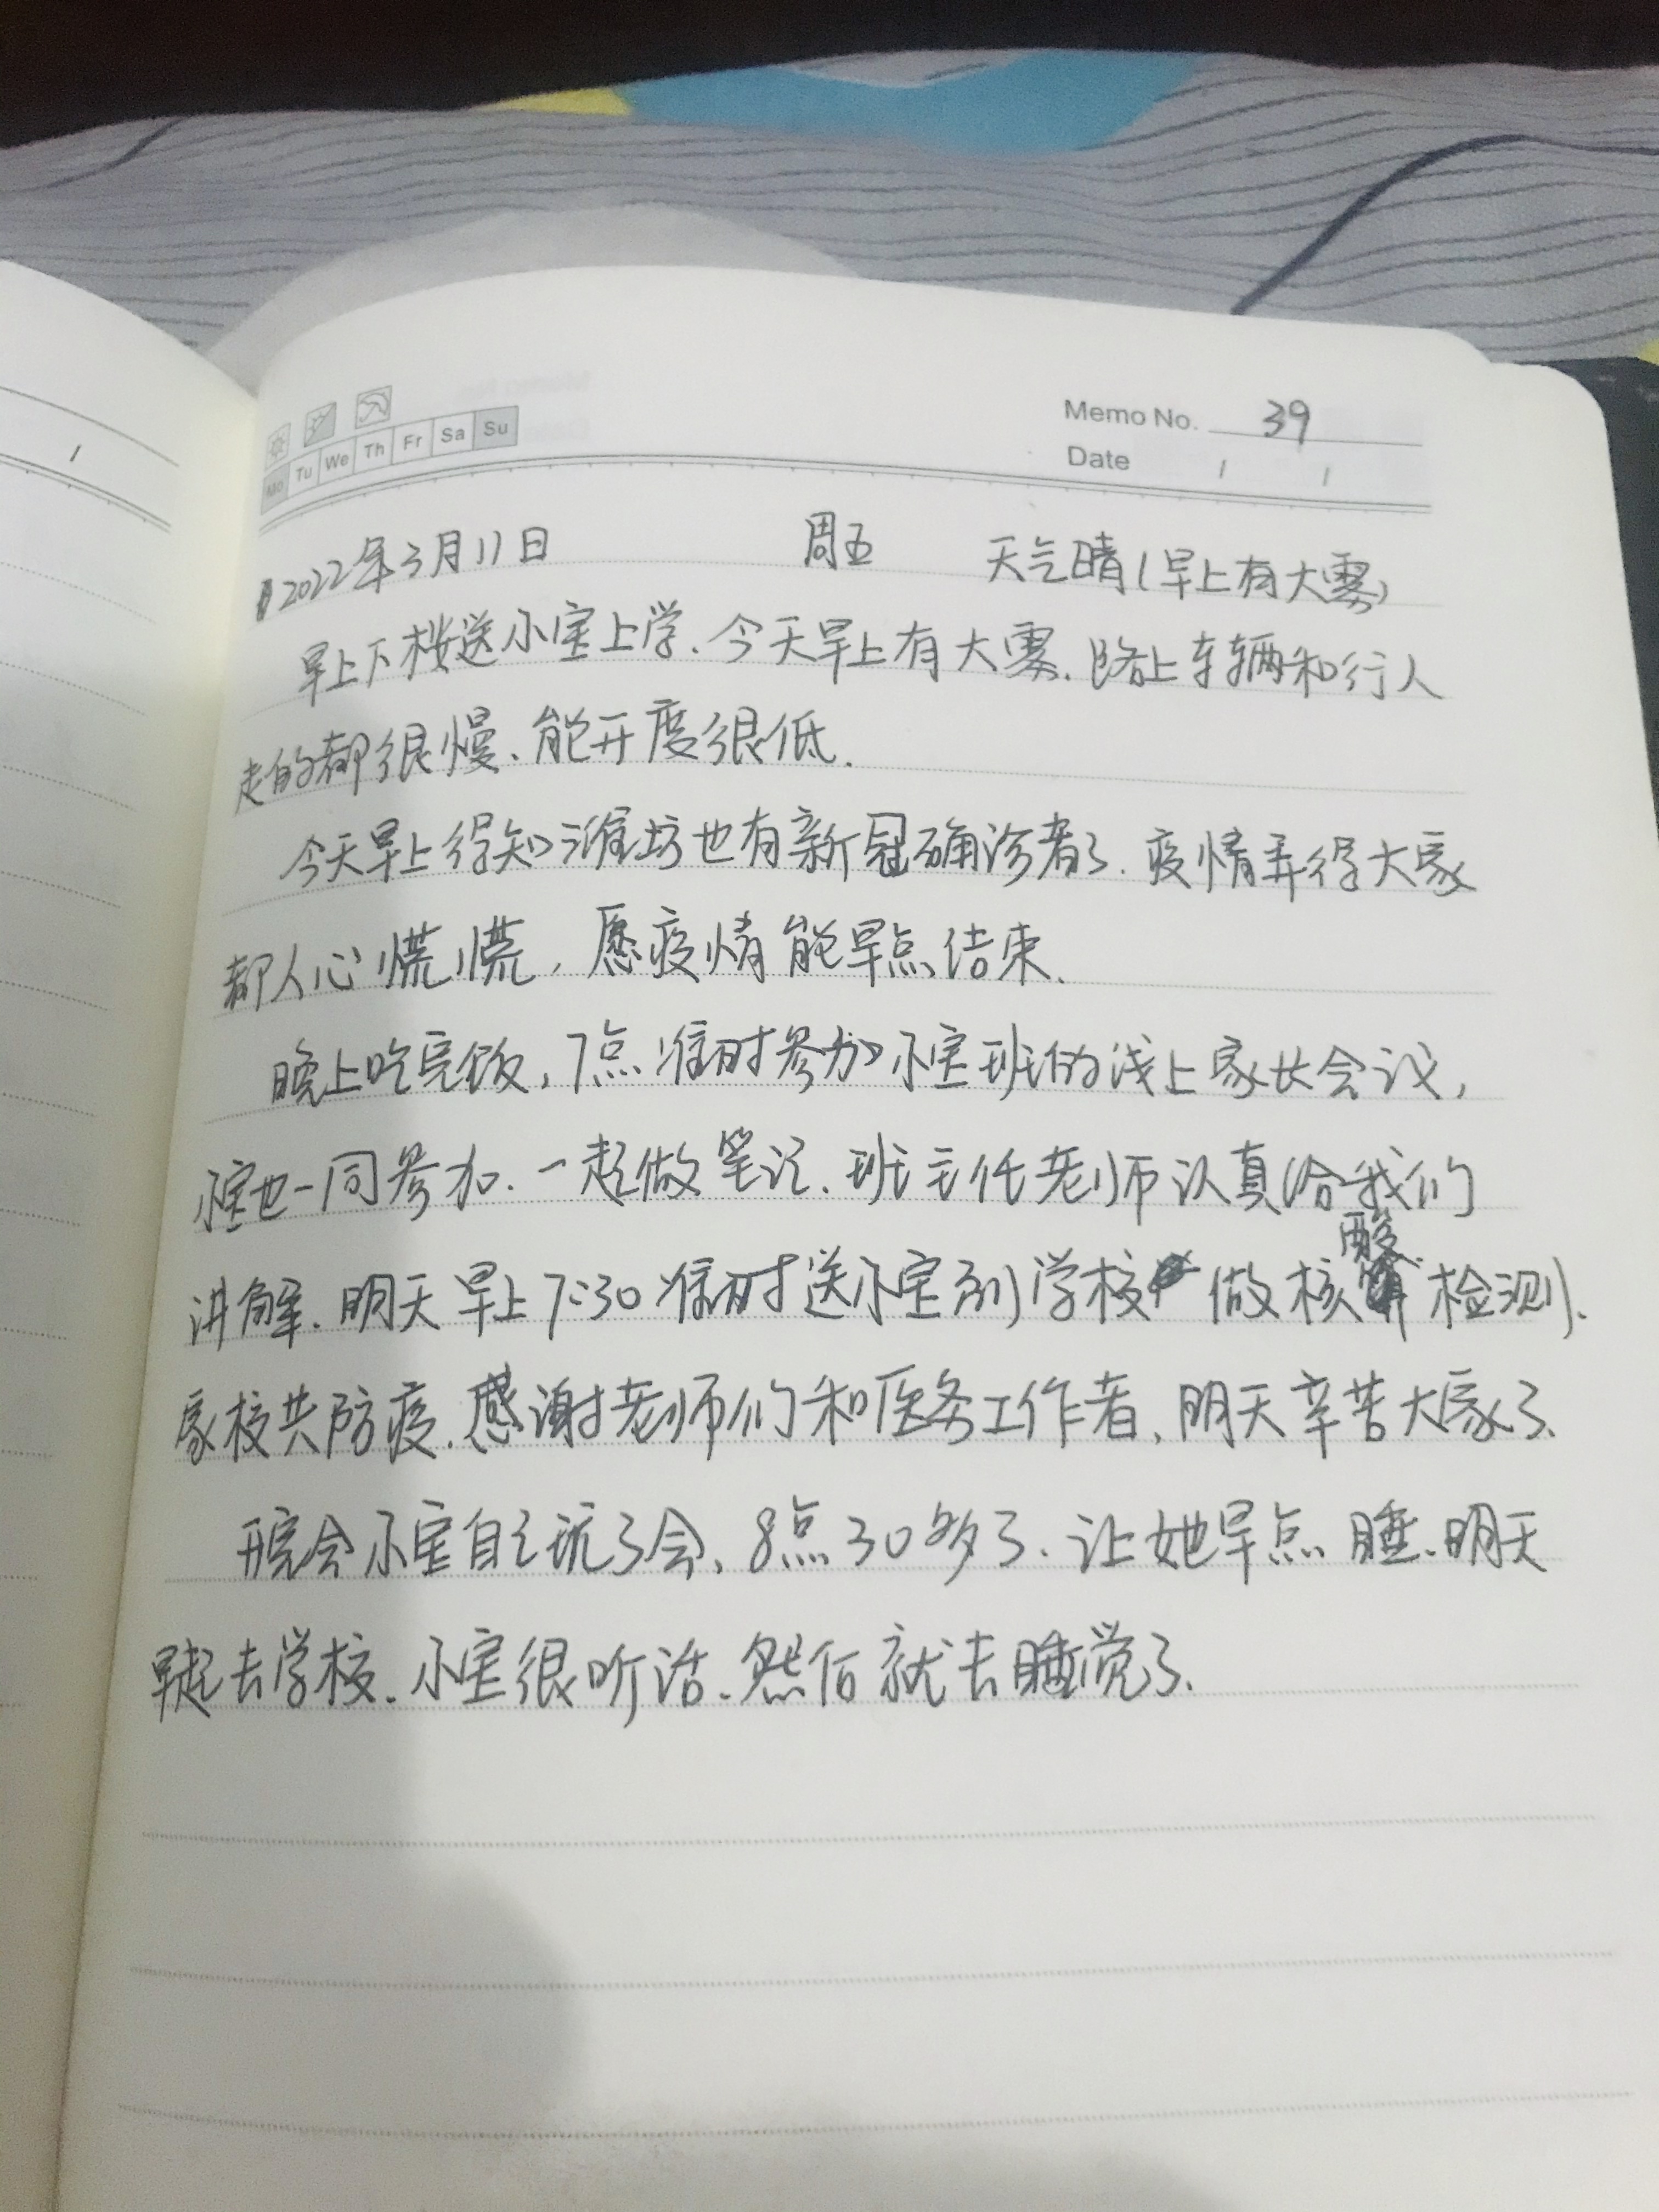 Memo No. 39
Mo Tu We Th Fr Sa Su
Date / /
2022年3月11日 周五 天气晴(早上有大雾)
早上下楼送小宝上学、今天早上有大雾、路上车辆和行人
走的都很慢、能开度很低.
今天早上得知潍坊也有新冠确诊者了、疫情弄得大家
都人心慌慌,愿疫情能早点结束、
晚上吃完饭,7点准时参加小宝班的线上家长会议,
小宝也一同参加、一起做笔记、班主任老师认真给我们
讲解、明天早上7:30准时送小宝到学校做核酸检测、
家校共防疫、感谢老师们和医务工作者、明天辛苦大家了、
开完会小宝自己玩了会、8点30多了、让她早点睡、明天
早起去学校、小宝很听话、然后就去睡觉了、